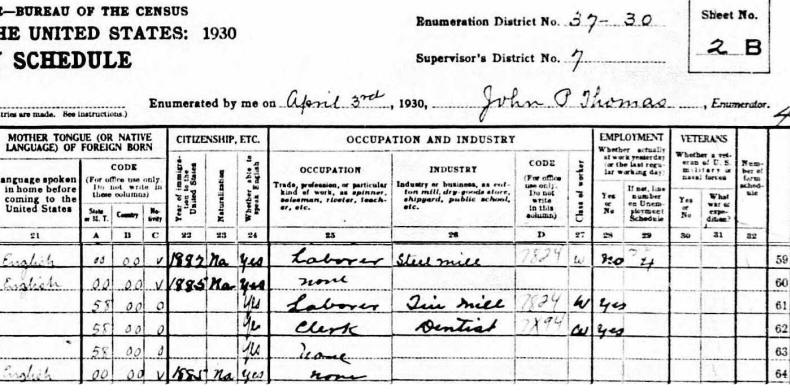 E—BUREAU OF THE CENSUS
HE UNITED STATES: 1930
Y SCHEDULE
Enumeration District No. 37-30
Supervisor's District No. 7
Sheet No.
2 B
tries are made. See instructions.)
Enumerated by me on April 3rd, 1930, John P Thomas, Enumerator.
MOTHER TONGUE (OR NATIVE LANGUAGE) OF FOREIGN BORN
CITIZENSHIP, ETC.
OCCUPATION AND INDUSTRY
EMPLOYMENT
VETERANS
anguage spoken in home before coming to the United States
CODE
(For office use only. Do not write in these columns)
State or M. T.
Country
Nativity
Year of immigration to the United States
Naturalization
Whether able to speak English
OCCUPATION
Trade, profession, or particular kind of work, as spinner, salesman, riveter, teacher, etc.
INDUSTRY
Industry or business, as cotton mill, dry-goods store, shipyard, public school, etc.
CODE
(For office use only. Do not write in this column)
Class of worker
Whether actually at work yesterday (or the last regular working day)
Yes or No
If not, line number on Unemployment Schedule
Whether a veteran of U. S. military or naval forces
Yes or No
What war or expedition?
Number of farm schedule
21 A B C 22 23 24 25 26 D 27 28 29 30 31 32
English 00 00 V 1887 Na Yes Laborer Steel mill 7824 W No 4 59
English 00 00 V 1885 Na Yes none 60
58 00 0 Yes Laborer Tin Mill 7824 W Yes 61
58 00 0 Yes Clerk Dentist 7894 W Yes 62
58 00 0 Yes none 63
English 00 00 V 1885 Na Yes none 64